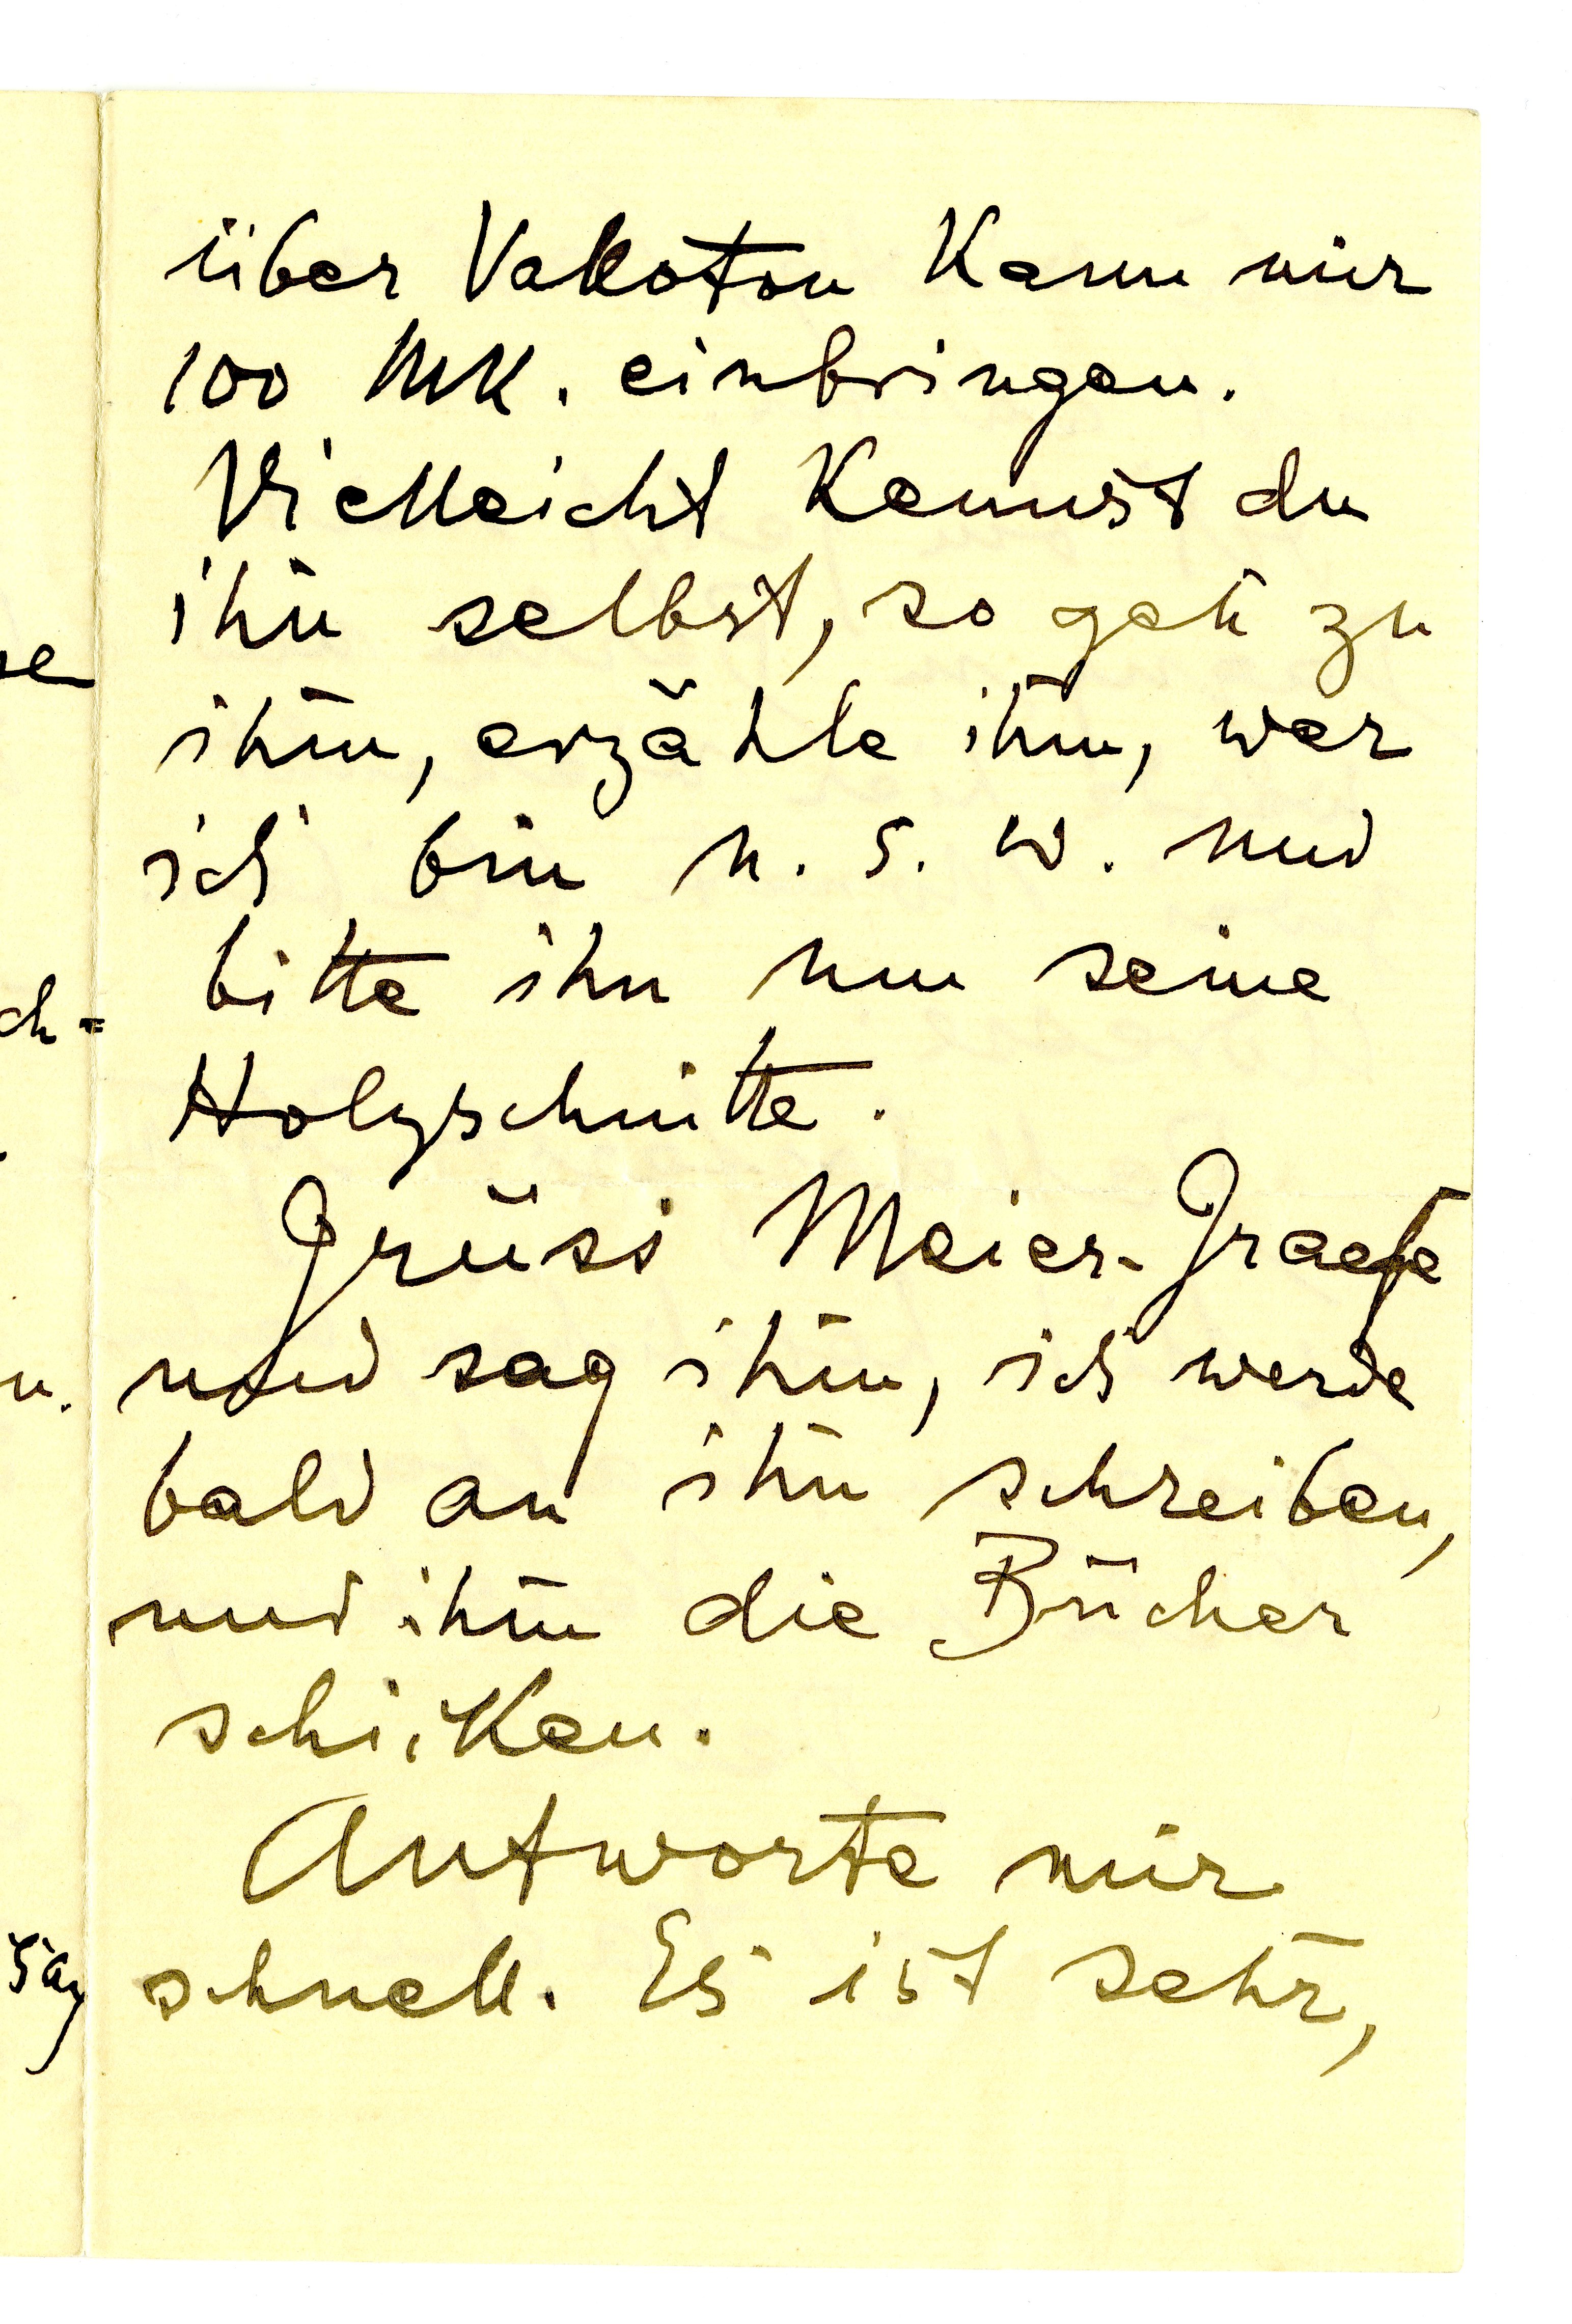 über Valloton kann mir
100 Mk. einbringen.
Vielleicht kennst du
ihn selbst, so geh zu
ihm, erzähle ihm, wer
ich bin u. s. w. und
bitte ihn um seine
Holzschnitte.
Grüss Meier-Graefe
und sag ihm, ich werde
bald an ihn schreiben,
und ihm die Bücher
schicken.
Antworte mir
schnell. Es ist sehr,